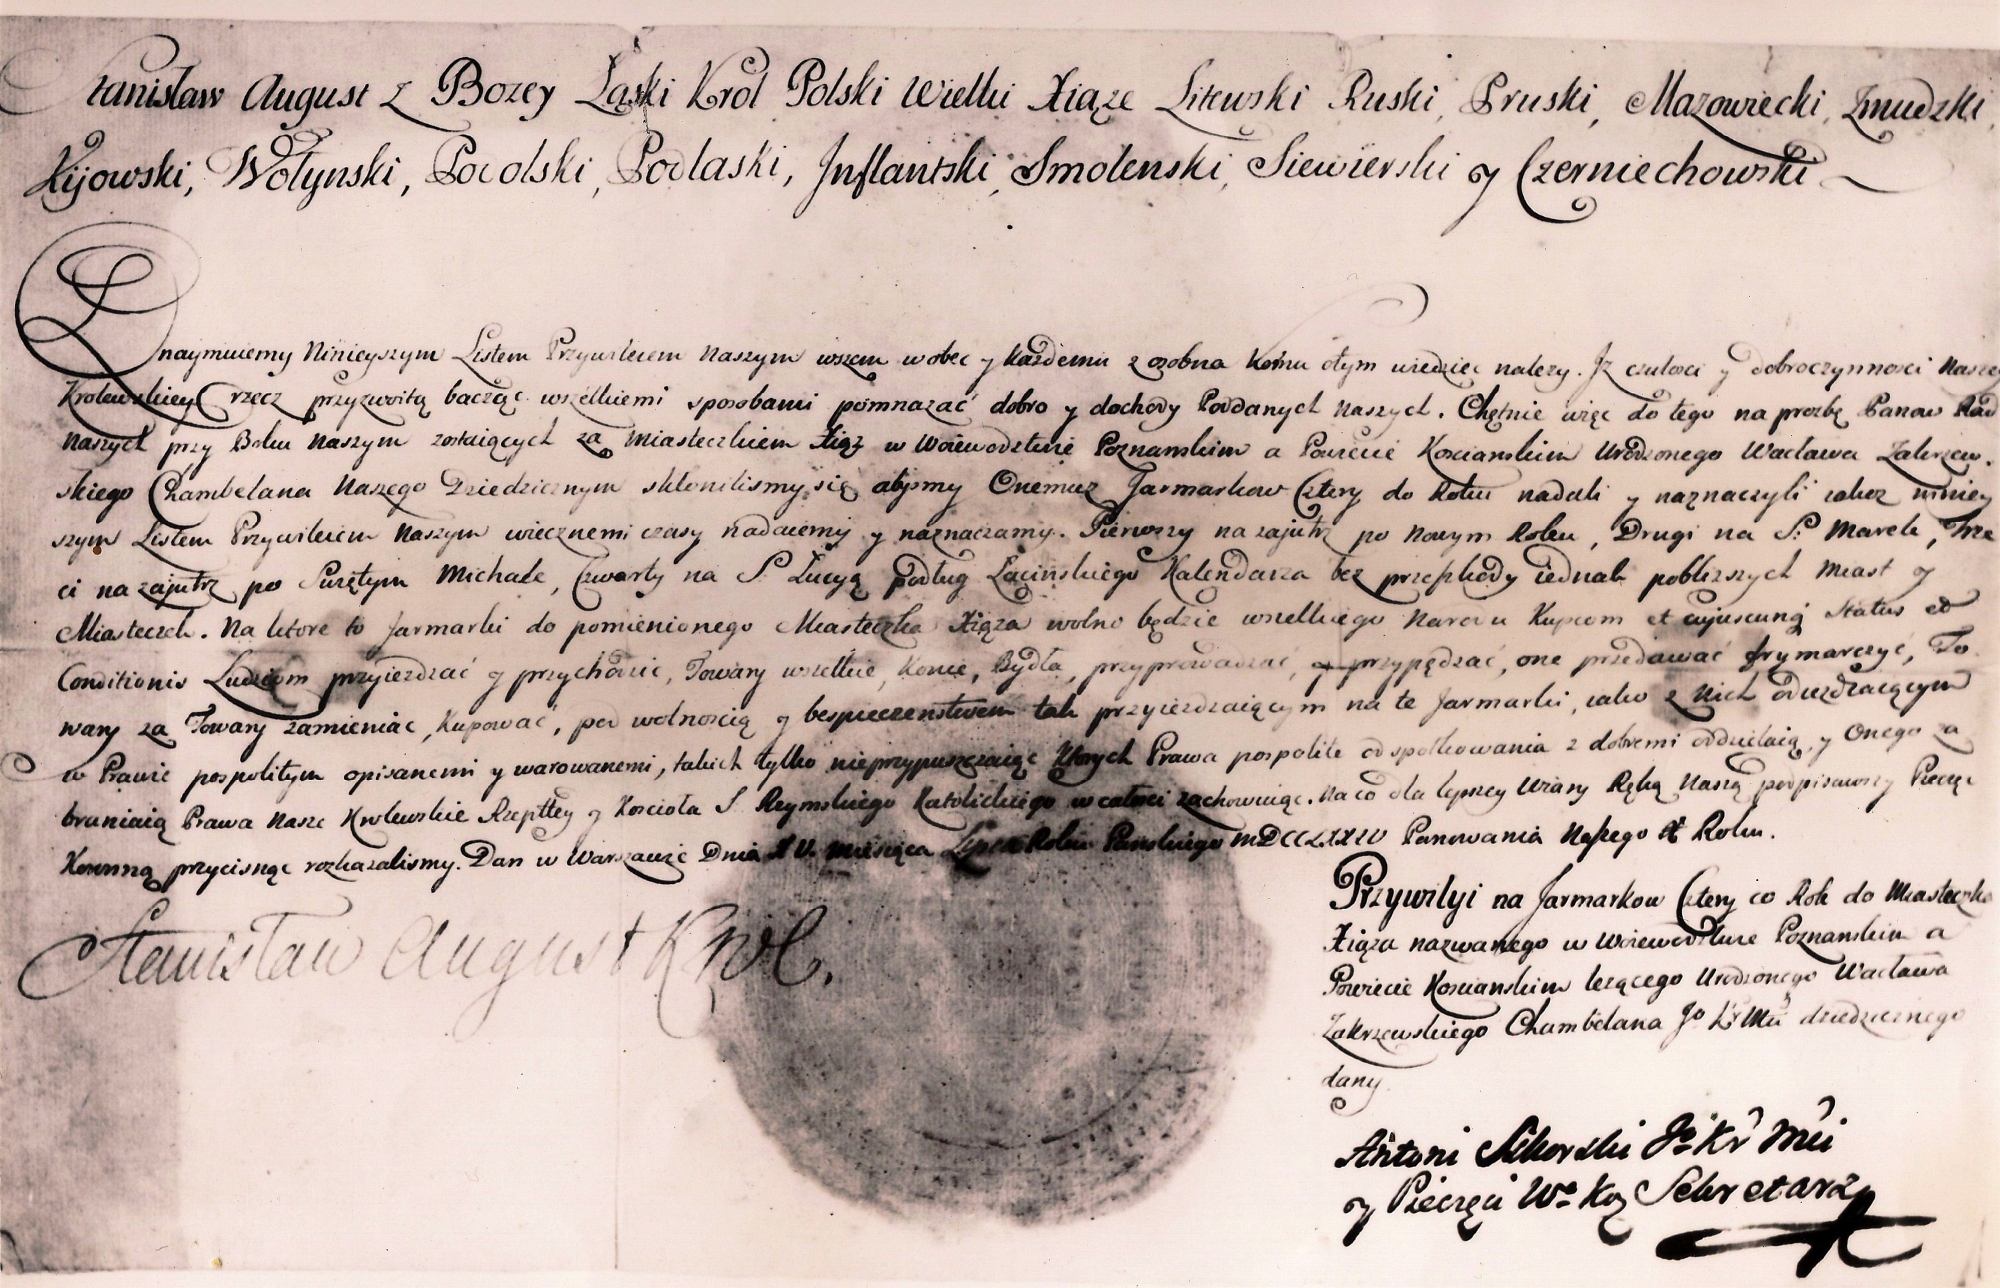 Stanisław August z Bozey Łaski Krol Polski Wielki Xiąze Litewski Ruski, Pruski, Mazowiecki, Zmudzki,
Kijowski, Wołynski, Podolski, Podlaski, Inflantski, Smolenski, Siewierski y Czerniechowski
Znaymuiemy Ninieyszym Listem Przywileiem Naszym wszem wobec y każdemu z osobna komu otym wiedziec nalezy. Jz czułosci y dobroczynnosci Naszey
Krolewskiey rzecz przyzwoitą bacząc wszelkiemi sposobami pomnazać dobro y dochody Poddanych Naszych. Chętnie więc do tego na prozbę Panow Rad
Naszych przy Boku Naszym zostaiących za Miasteczkiem Xiąz w Woiewodztwie Poznanskim a Powiecie Koscianskim Urodzonego Wacława Zakrzew-
skiego Chambelana Naszego Dziedzicznym skłonilismy się abysmy Onemuz Jarmarkow Cztery do Roku nadali y naznaczyli iakoz niniey
szym Listem Przywileiem Naszym wiecznemi czasy nadaiemy y naznaczamy. Pierwszy na zajutrz po Nowym Roku, Drugi na S. Marek, Trze
ci na zajutrz po Swiętym Michale, Czwarty na S. Łucyą podług Łacińskiego Kalendarza bez przeszkody iednak poblizszych Miast y
Miasteczek. Na ktore to Jarmarki do pomienionego Miasteczka Xiąza wolno będzie wszelkiego Narodu Kupcom et cujuscunq Status et
Conditionis Ludziom przyiezdzać y przychodzic, Towary wszelkie, Konie, Bydła, przyprowadzać, y przypędzać, one przedawać frymarczyć, To-
wary za Towary zamieniac, Kupować, pod wolnoscią y bespieczenstwem tak przyiezdzaiącym na te Jarmarki, iako z nich odiezdzaiącym
w Prawie pospolitym opisanemi y warowanemi, takich tylko nieprzypuszczaiąc Ktorych Prawa pospolite od społkowania z dobremi oddzielaią, y Onego za
braniaią Prawa Nasze Krolewskie Rzepltey y Kosciola S. Rzymskiego Katolickiego w całosci zachowuiąc. Na co dla lepszey Wiary Ręką Naszą podpisawszy Pieczęc
Koronną przycisnąc rozkazalismy. Dan w Warszawie Dnia XV. Miesiąca Lipca Roku Panskiego MDCCLXXIV Panowania Naszego X Roku.
Stanisław August Krol.
Przywilyi na Jarmarkow Cztery co Rok do Miasteczka
Xiąza nazwanego w Woiewodztwie Poznanskim a
Powiecie Koscianskim lezącego Urodzonego Wacława
Zakrzewskiego Chambelana Jo Kr Mci dziedzicznego
dany
Antoni Sikorski Jo Kr Mci
y Pieczęci Wo Ko Sekretarz